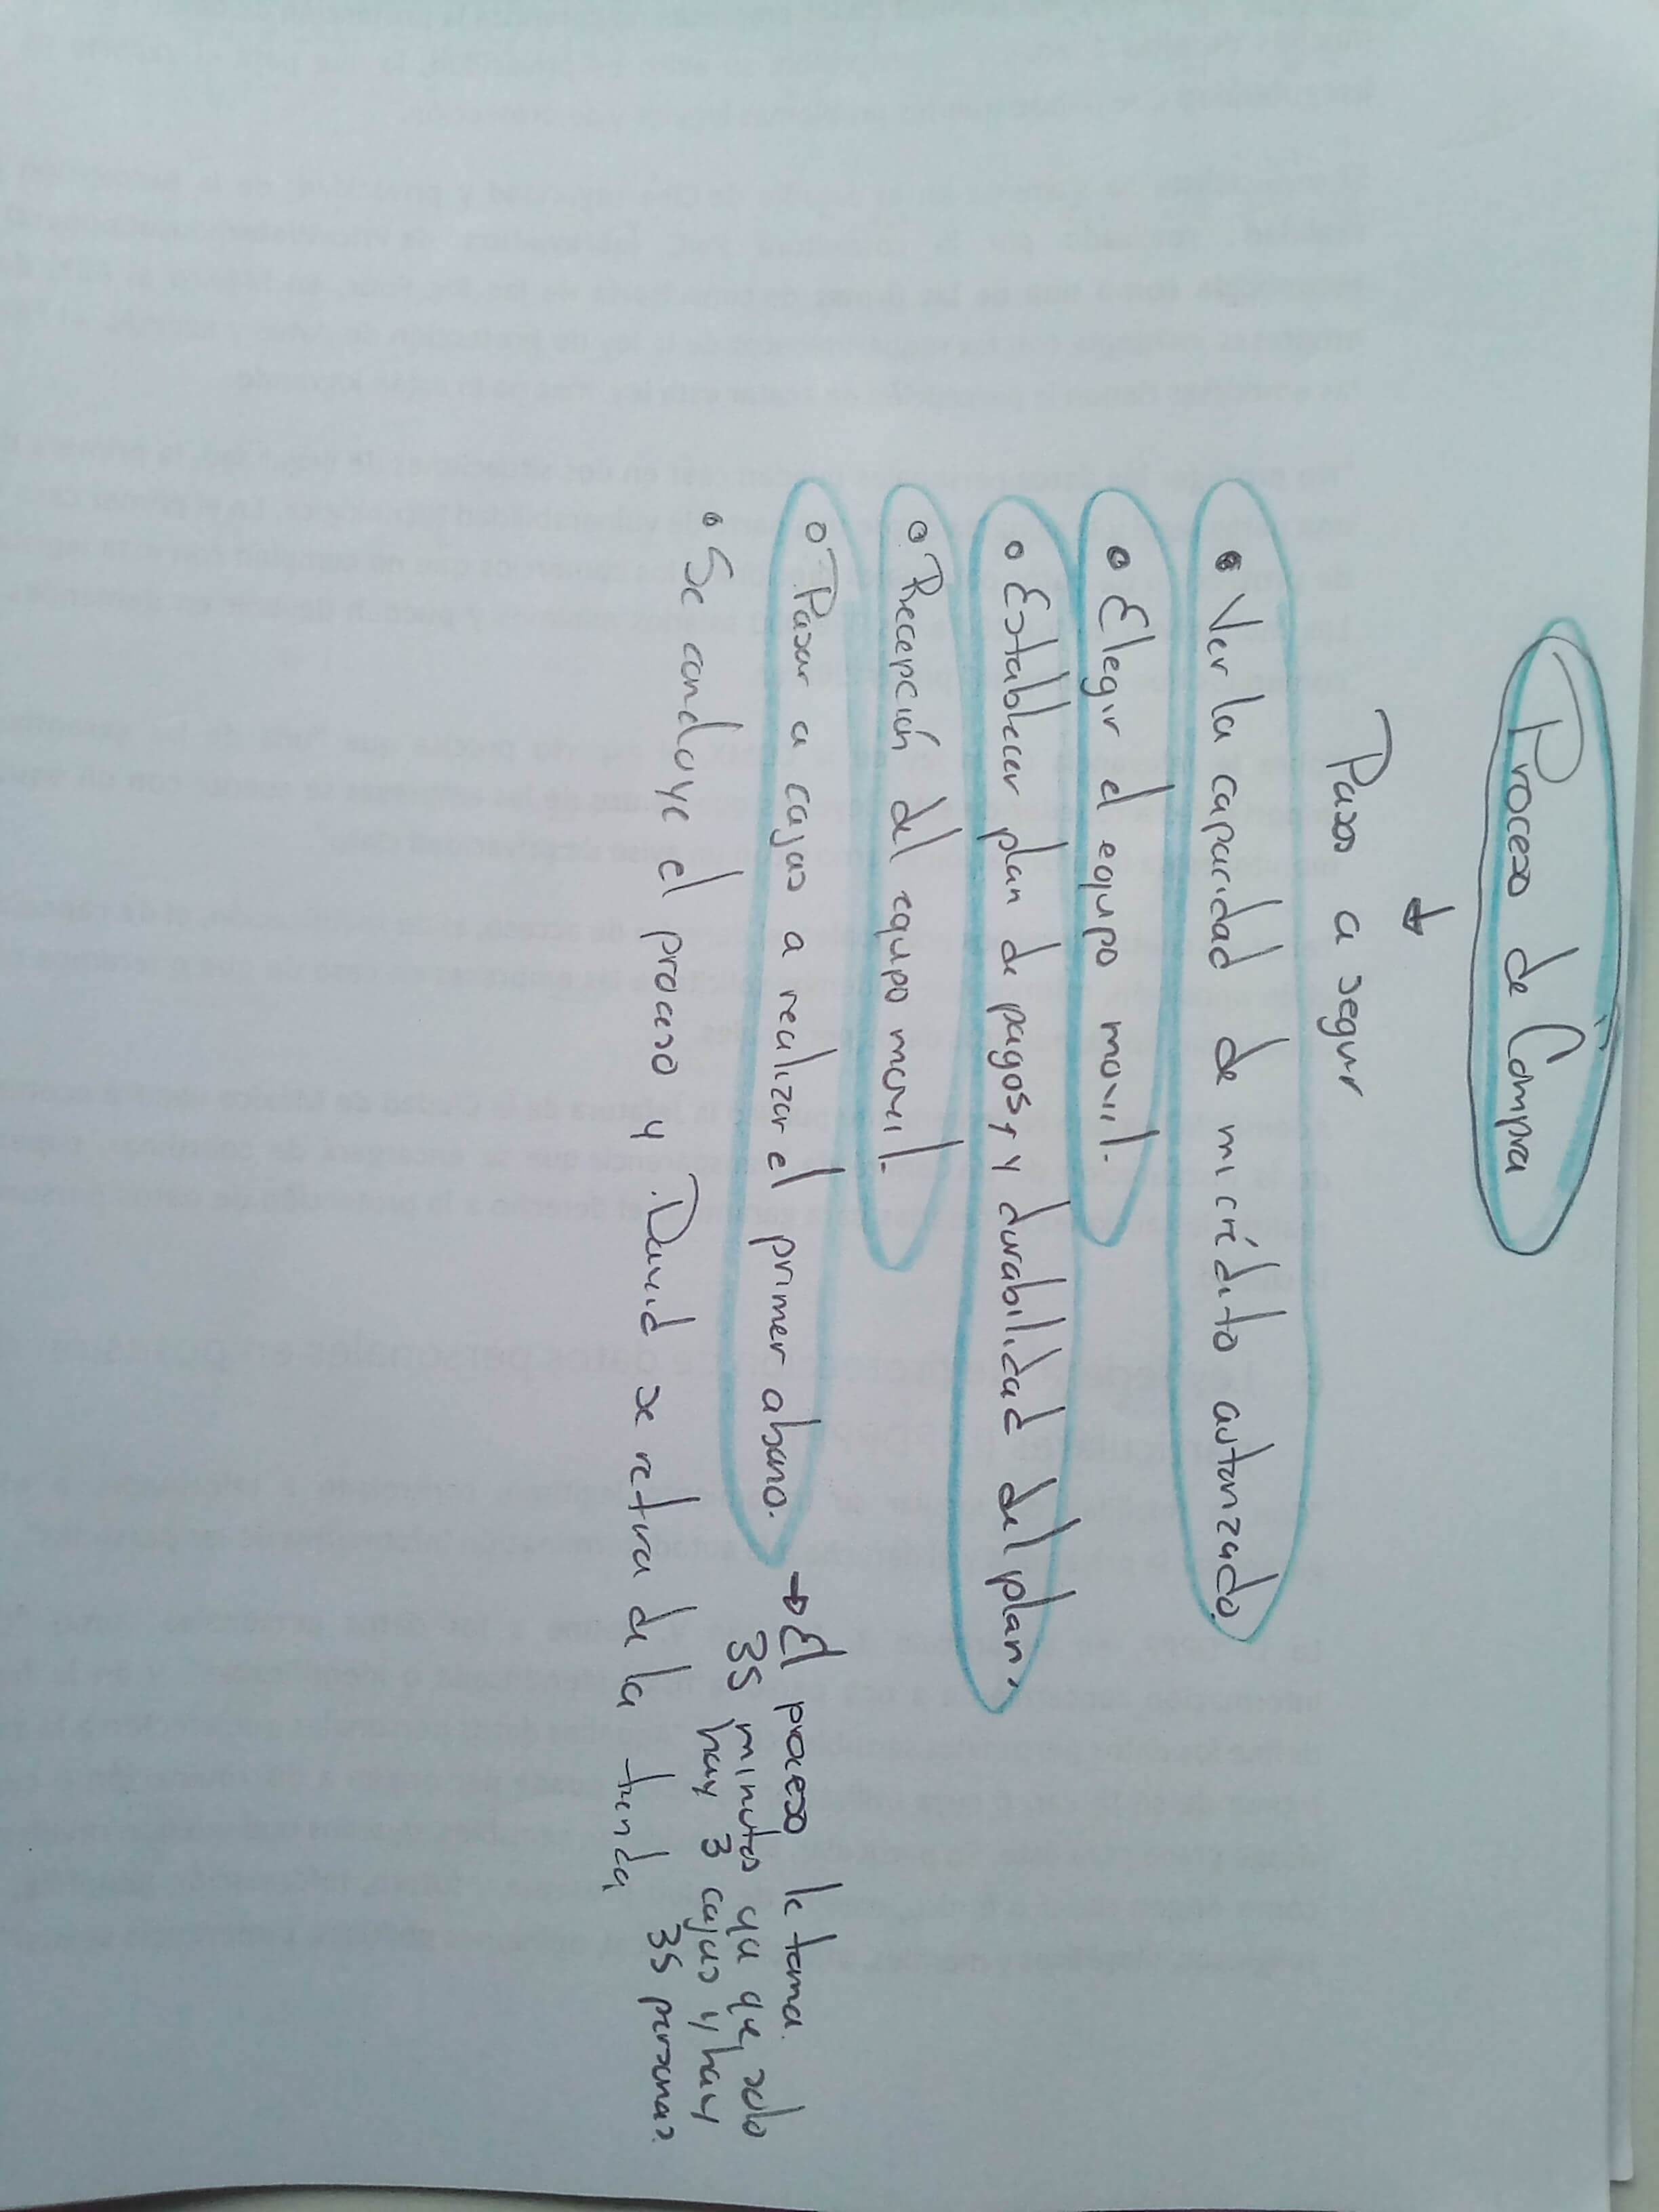 Proceso de Compra
Pasos a seguir
• Ver la capacidad de mi crédito autorizado.
• Elegir el equipo movil.
• Establecer plan de pagos, y durabilidad del plan.
• Recepción del equipo movil.
• Pasar a cajas a realizar el primer abono. → El proceso le toma
35 minutos ya que solo
hay 3 cajas y hay
35 personas.
• Se concluye el proceso y David se retira de la tienda